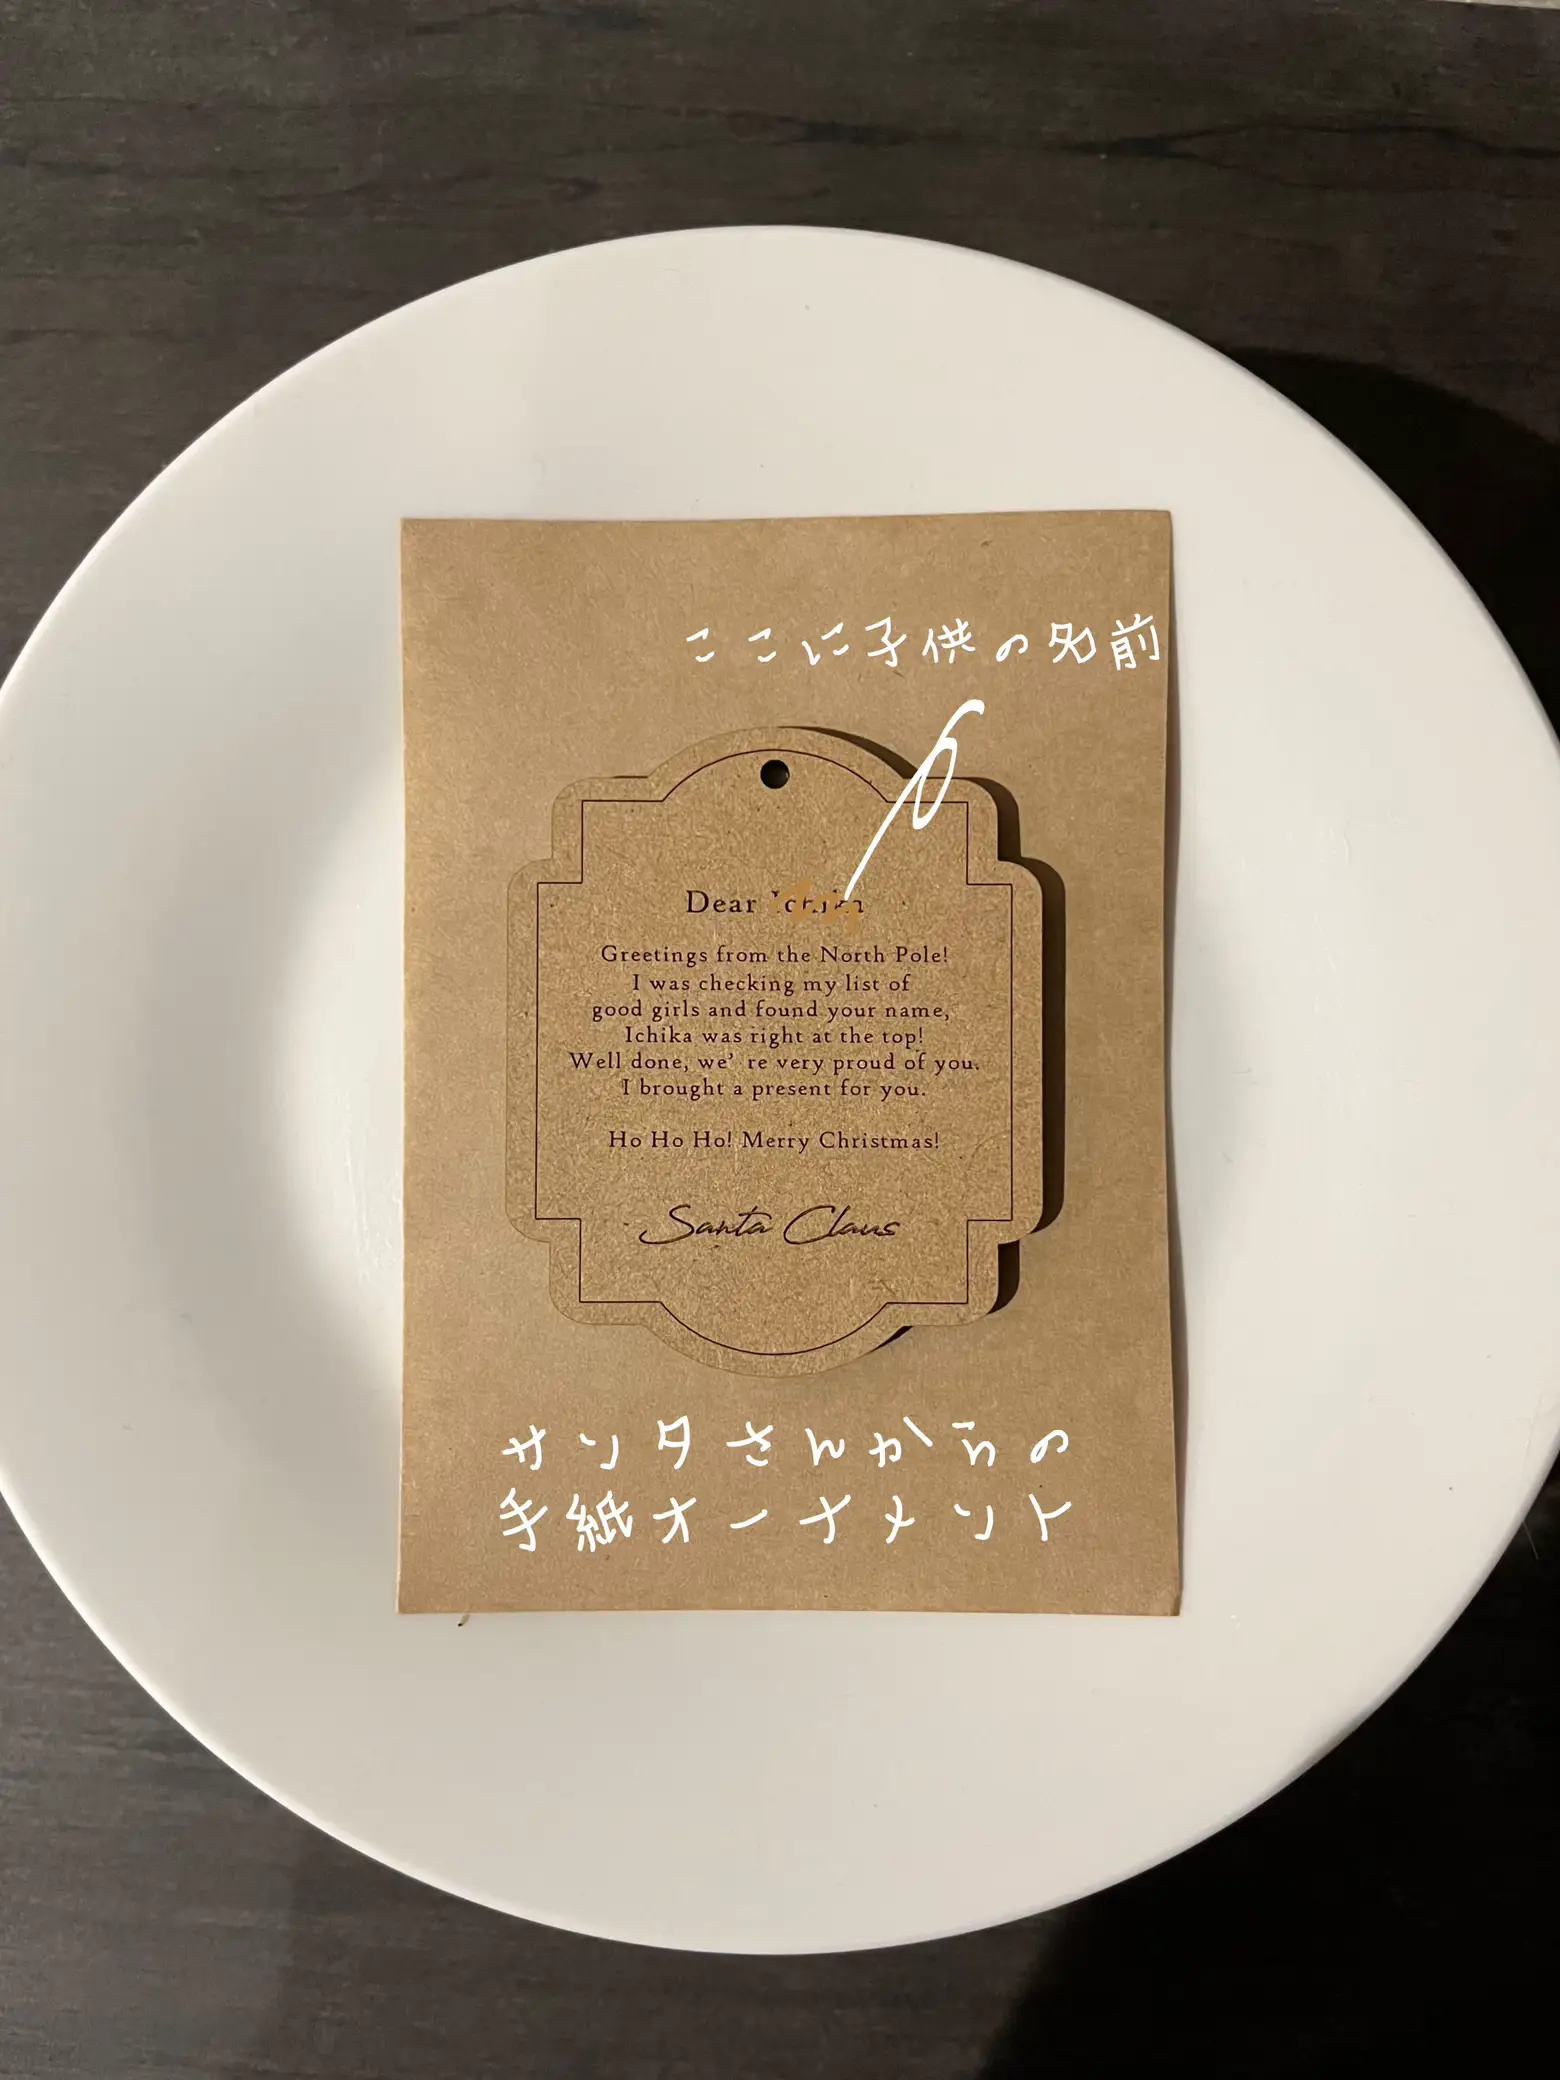 ここに子供の名前
Dear
Greetings from the North Pole!
I was checking my list of
good girls and found your name,
Ichika was right at the top!
Well done, we’ re very proud of you.
I brought a present for you.
Ho Ho Ho! Merry Christmas!
Santa Claus
サンタさんからの
手紙オーナメント